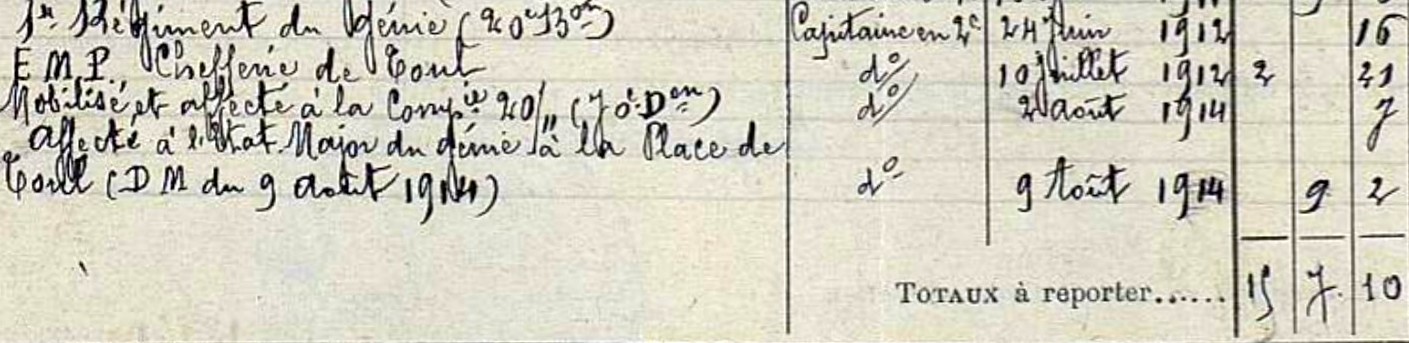 1er Régiment du Génie (20e Bon) Capitaine en 2e 24 Juin 1912 16
E.M.P. Chefferie de Toul do 10 Juillet 1912 2 21
Mobilisé et affecté à la Compie 20/„ (70e Don) do 2 août 1914 7
affecté à l'Etat Major du génie à la Place de
Toul (DM du 9 août 1914) do 9 Août 1914 9 2
TOTAUX à reporter...... 15 7 10